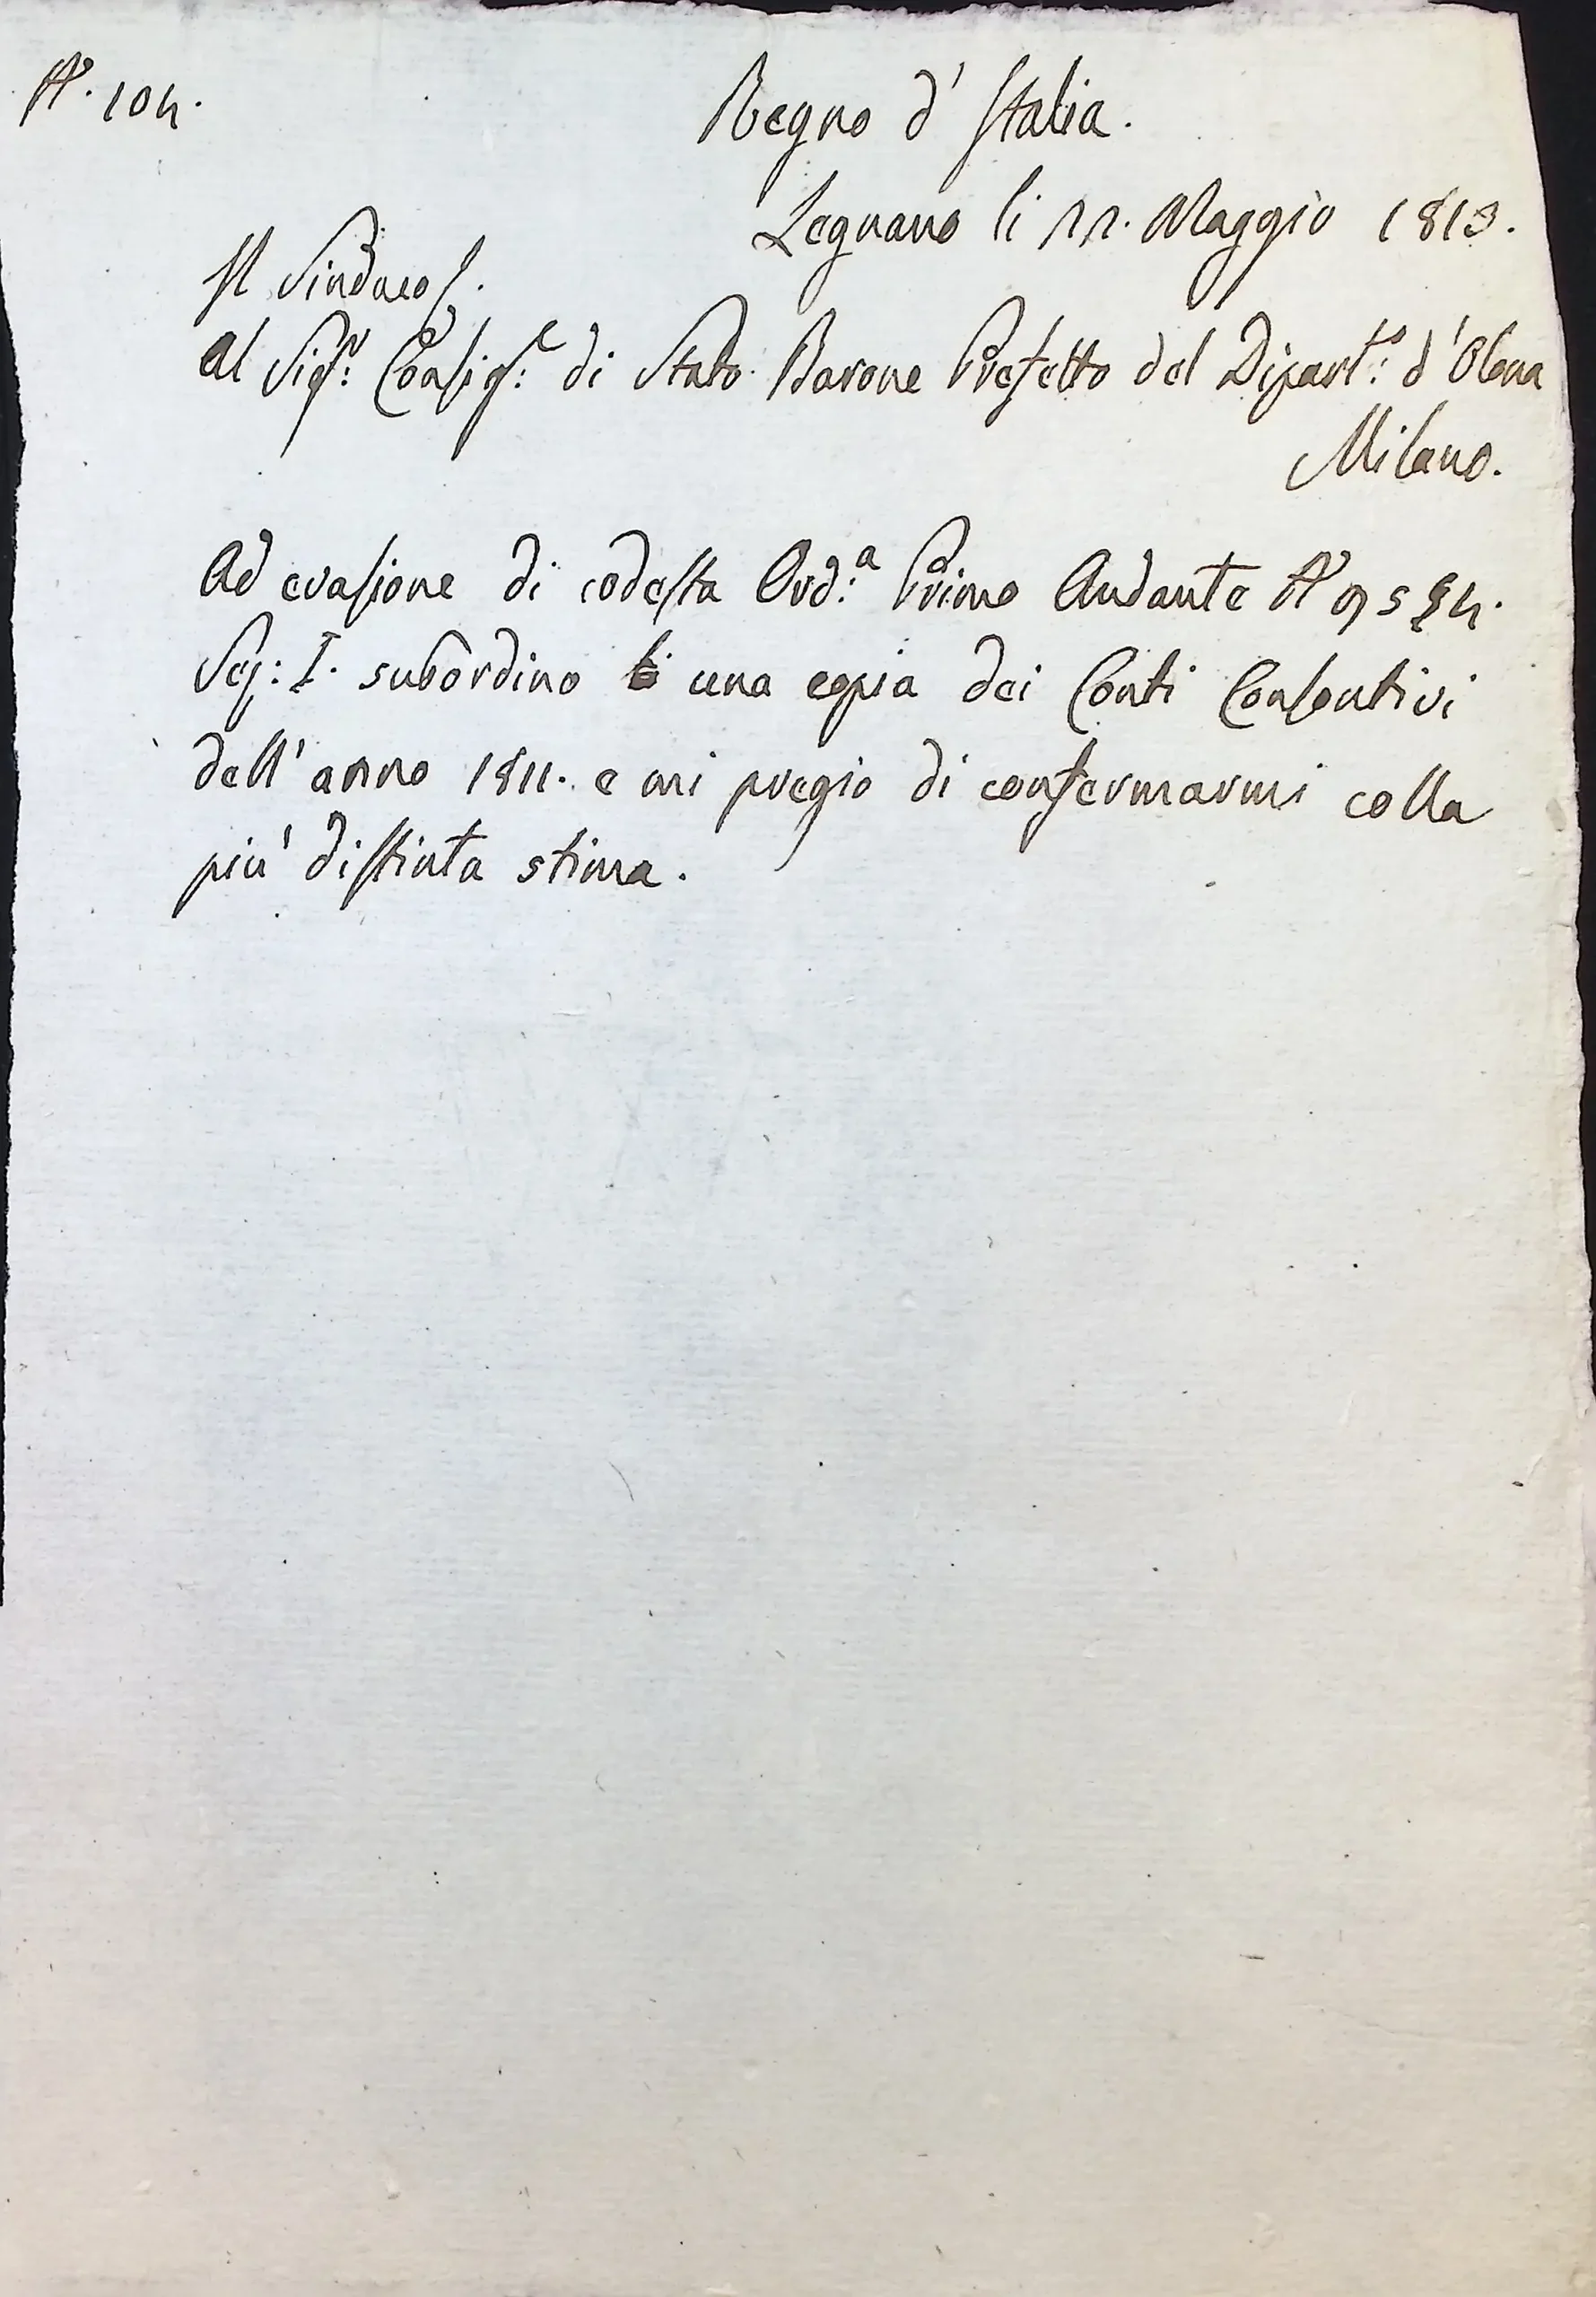 N.° 104.
Regno d' Italia.
Legnano li 22. Maggio 1813.
Il Sindaco
Al Sig.r Consig.e di Stato Barone Prefetto del Dipart.o d'Olona
Milano.
Ad evasione di codesta Ord.a Primo Andante N.°
Sez: I. subordino una copia dei Conti Consontivi
dell' anno 1811. e mi pregio di confermarmi colla
più distinta stima.